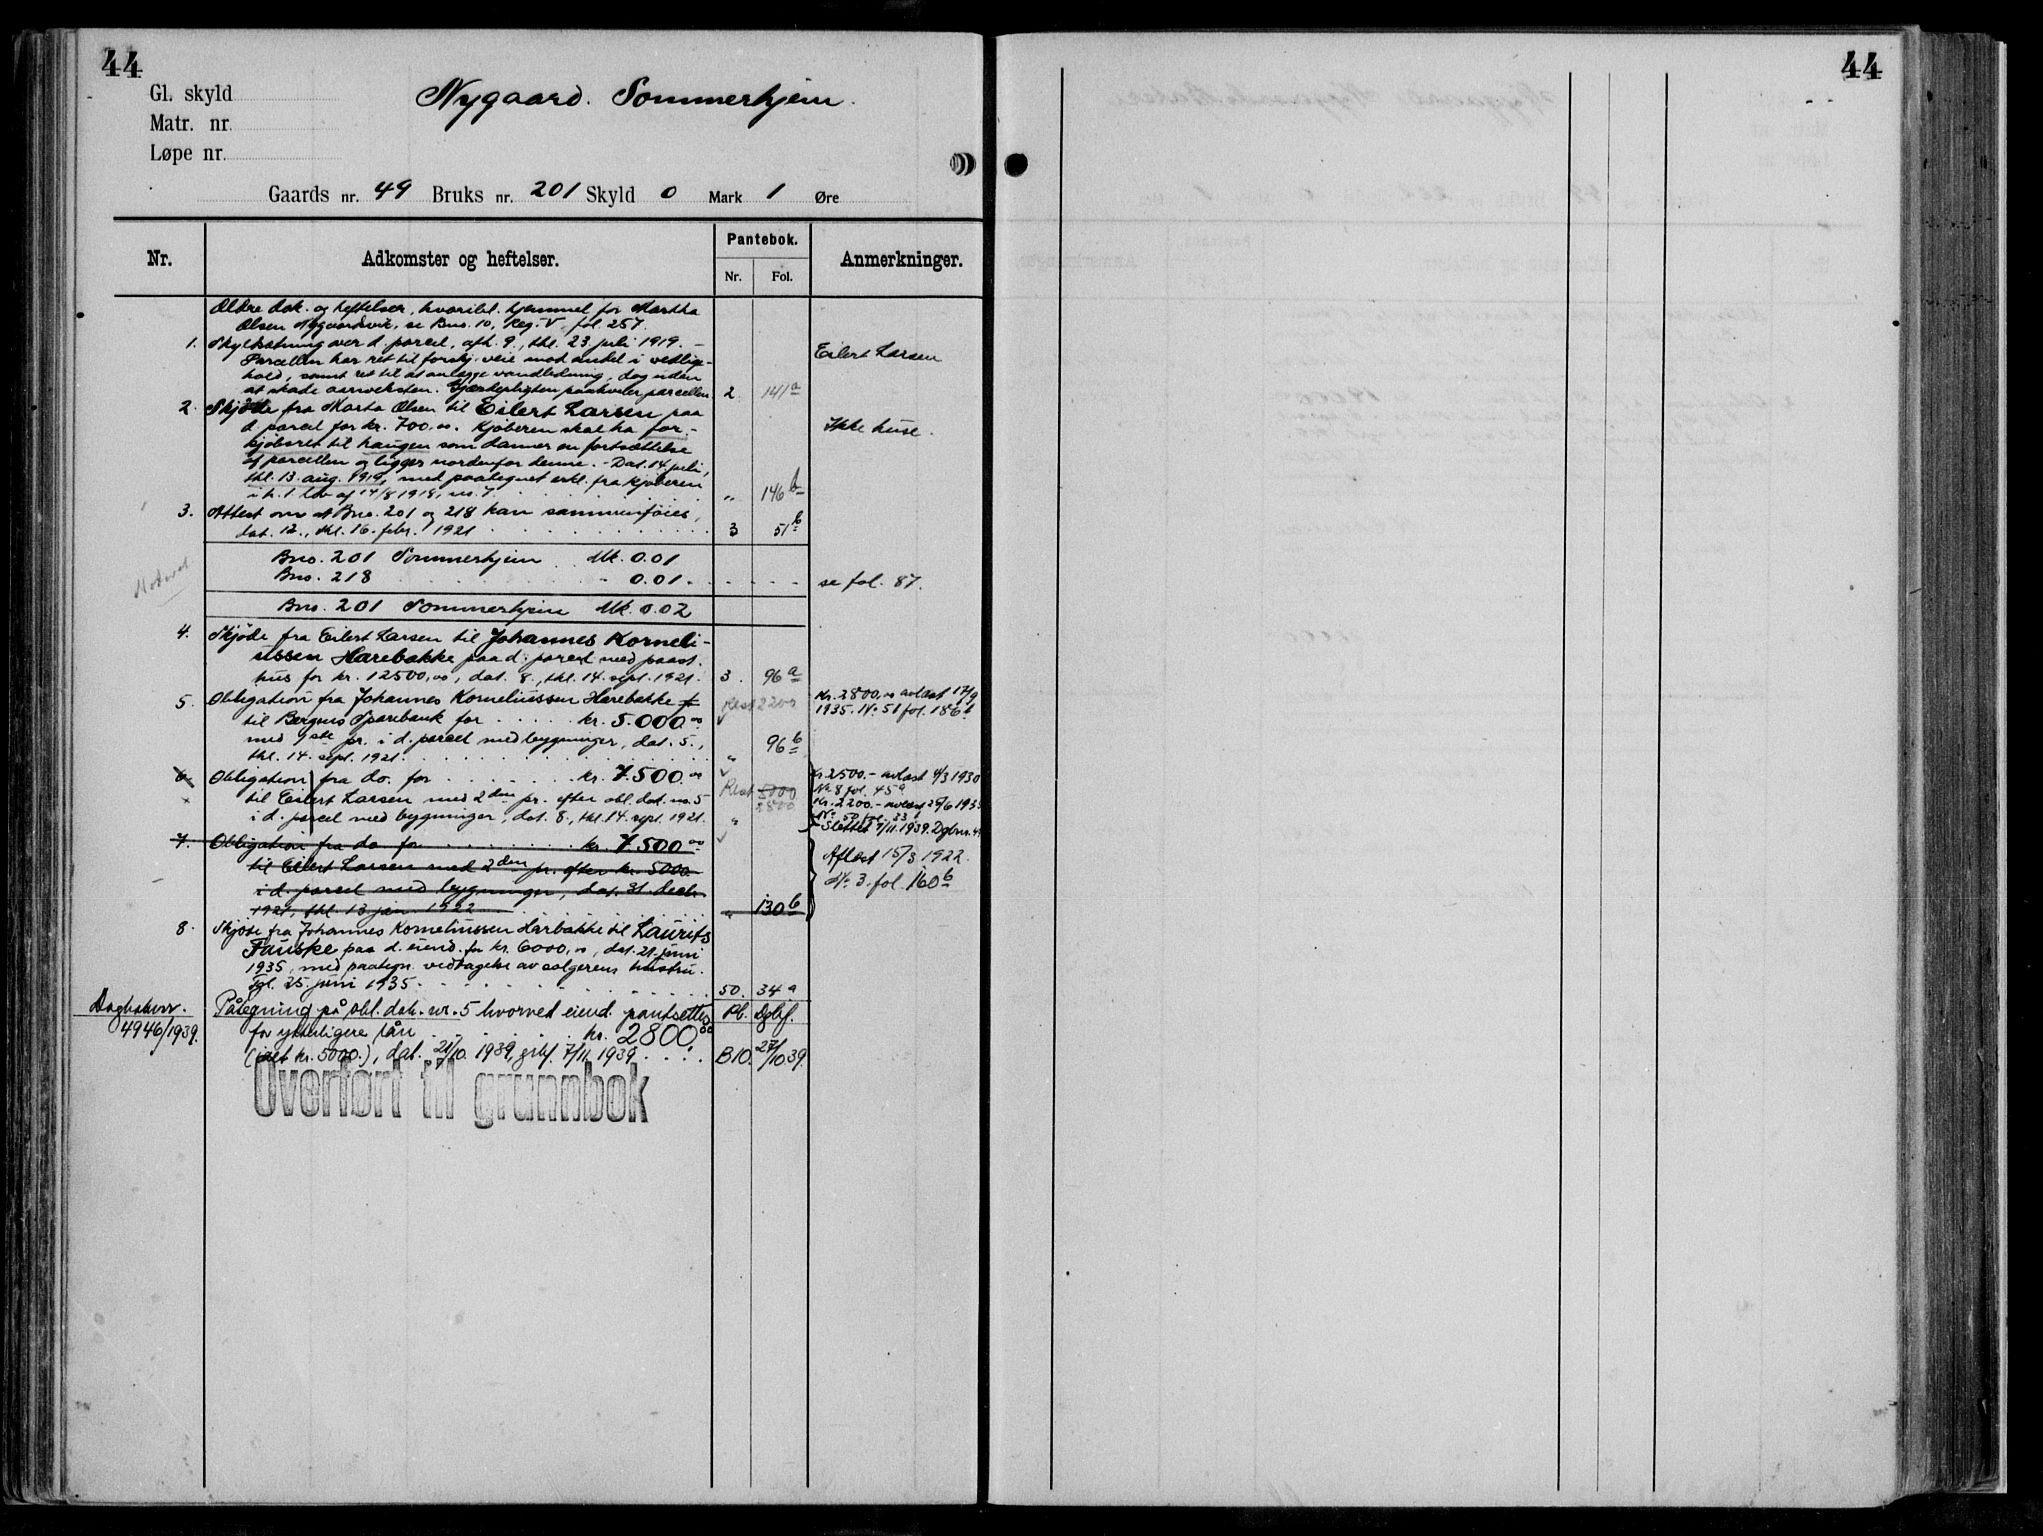 44
Gl. skyld
Matr. nr.
Løpe nr.
Nygaard. Sommerhjem.
Gaards nr. 49 Bruks nr. 201 Skyld 0 Mark 1 Øre
Nr. Adkomster og heftelser. Pantebok. Anmerkninger.
Nr. Fol.
Ældre dok. og heftelser, hvoribl. hjemmel for Martha
Olsen Nygaardsvik, se Bno. 10, Reg. V, fol. 257.
1. Skyldsætning over d. parcel, afh. 9., thl. 23. juli 1919. –
Parcellen har ret til forskj. veie mod andel i vedlige-
hold, samt ret til at anlægge vandledning, dog uden
at skade aarsveksten. Gjærderligten paahviler parcellen. 2 141a
Eilert Larsen
2. Skjøte fra Marta Olsen til Eilert Larsen paa
d. parcel for kr. 700,00. Kjøberen skal ha for-
kjøbsret til haugen som danner en fortsættelse
af parcellen og ligger nordenfor denne. – Dat. 14. juli,
thl. 13. aug. 1919, med paategnet erkl. fra kjøberen
i h. t. lov af 14/8 1918, nr. 7. „ 146b
Ikke huse.
3. Attest om at Bno. 201 og 218 kan sammenføies,
dat. 12., thl. 16. febr. 1921 3 51b
Bno. 201 Sommerhjem Mk. 0.01
Bno. 218 - 0.01. se fol. 87.
Bno. 201 Sommerhjem Mk. 0.02
4. Skjøde fra Eilert Larsen til Johannes Korneli-
ussen Harebakke paa d. parcel med paast.
hus for kr. 12500,00, dat. 8., thl. 14. sept. 1921. 3. 96a
5. Obligation fra Johannes Korneliussen Harebakke
til Bergens Sparebank for kr. 5.000.00 Rest 2200
med 1ste pr. i d. parcel med bygninger, dat. 5.,
thl. 14. sept. 1921. „ 96b
Kr. 2800,00 avlæst 17/9
1935. No 51 fol. 186b
6. Obligation fra do. for kr. 7.500.00
til Eilert Larsen med 2den pr. efter obl. dok. no. 5
i d. parcel med bygninger, dat. 8., thl. 14. sept. 1921. „
Rest 5000
2800
Kr. 2500.– avlæst 4/3 1930
No 8 fol. 45a
Kr. 2200.– avlæst 25/6 1935
No 50 fol. 33b
Slettet 7/11. 1939. Dgbnr.
7. Obligation fra do for kr. 7.500.00
til Eilert Larsen med 2den pr. efter kr. 5000.
i d. parcel med bygninger, dat. 31. decbr.
1921, thl. 13 jan. 1922 „ 130b
Aflæst 15/3 1922.
No. 3. fol. 160b
8. Skjøte fra Johannes Korneliussen Harbakke til Laurits
Fauske paa d. eiend. for kr. 6000,00, dat. 21. juni
1935, med paategn. vedtagelse av sælgerens hustru.
Tgl. 25. juni 1935. 50. 34a
Dagboknr. 4946/1939.
Påtegning på obl. dok. nr. 5 hvorved eiend. pantsettes Pb. Dgbf.
for ytterligere lån kr. 2800.00
(ialt kr. 5000.), dat. 21/10. 1939, gibf. 7/11. 1939. B10. 27/10 39.
Overført til grunnbok
44